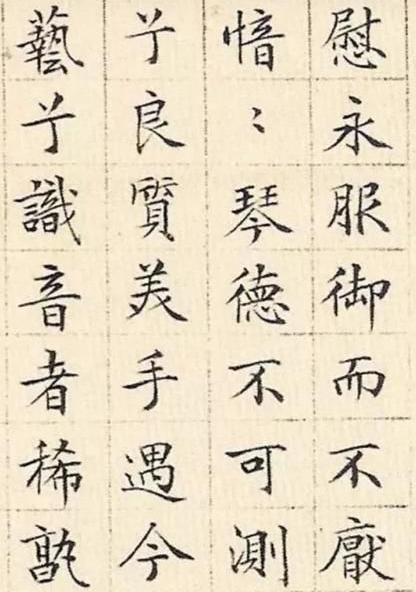 慰永服御而不厭
愔〻琴德不可測
兮良質美手遇今
藝兮識音者稀孰